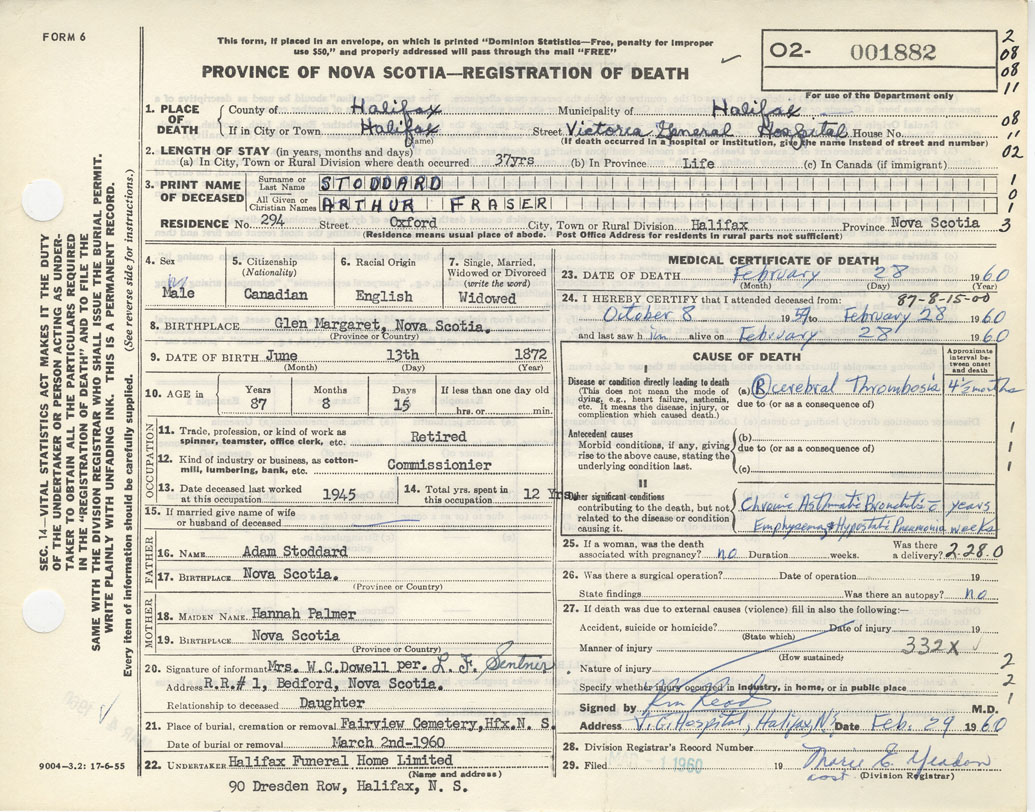 FORM 6
This form, if placed in an envelope, on which is printed "Dominion Statistics—Free, penalty for improper
use $50," and properly addressed will pass through the mail "FREE"
PROVINCE OF NOVA SCOTIA—REGISTRATION OF DEATH
O2- 001882
For use of the Department only
2
08
08
11
08
11
02
1
0
1
3
1. PLACE OF DEATH
County of Halifax Municipality of Halifax
If in City or Town Halifax Street Victoria General Hospital House No.
(Name) (If death occurred in a hospital or institution, give the name instead of street and number)
2. LENGTH OF STAY (in years, months and days)
(a) In City, Town or Rural Division where death occurred 37yrs (b) In Province Life (c) In Canada (if immigrant)
3. PRINT NAME OF DECEASED
Surname or Last Name STODDARD
All Given or Christian Names ARTHUR FRASER
RESIDENCE No. 294 Street Oxford City, Town or Rural Division Halifax Province Nova Scotia
(Residence means usual place of abode. Post Office Address for residents in rural parts not sufficient)
SEC. 14—VITAL STATISTICS ACT MAKES IT THE DUTY
OF THE UNDERTAKER OR PERSON ACTING AS UNDER-
TAKER TO OBTAIN ALL THE PARTICULARS REQUIRED
IN THE "REGISTRATION OF DEATH" AND TO FILE THE
SAME WITH THE DIVISION REGISTRAR WHO SHALL ISSUE THE BURIAL PERMIT.
WRITE PLAINLY WITH UNFADING INK. THIS IS A PERMANENT RECORD.
Every item of information should be carefully supplied. (See reverse side for instructions.)
4. Sex Male
5. Citizenship (Nationality) Canadian
6. Racial Origin English
7. Single, Married, Widowed or Divorced (write the word) Widowed
8. BIRTHPLACE Glen Margaret, Nova Scotia.
(Province or Country)
9. DATE OF BIRTH June 13th 1872
(Month) (Day) (Year)
10. AGE in Years 87 Months 8 Days 15 If less than one day old hrs. or min.
OCCUPATION
11. Trade, profession, or kind of work as spinner, teamster, office clerk, etc. Retired
12. Kind of industry or business, as cotton-mill, lumbering, bank, etc. Commissionier
13. Date deceased last worked at this occupation 1945
14. Total yrs. spent in this occupation 12 Yrs.
15. If married give name of wife or husband of deceased
FATHER
16. NAME Adam Stoddard
17. BIRTHPLACE Nova Scotia.
(Province or Country)
MOTHER
18. MAIDEN NAME Hannah Palmer
19. BIRTHPLACE Nova Scotia
(Province or Country)
20. Signature of informant Mrs. W.C.Dowell per. L. F. Sentner
Address R.R.# 1, Bedford, Nova Scotia.
Relationship to deceased Daughter
21. Place of burial, cremation or removal Fairview Cemetery,Hfx.N. S.
Date of burial or removal March 2nd-1960
22. UNDERTAKER Halifax Funeral Home Limited
(Name and address)
90 Dresden Row, Halifax, N. S.
9004—3.2: 17-6-55
MEDICAL CERTIFICATE OF DEATH
23. DATE OF DEATH February 28 1960
(Month) (Day) (Year)
24. I HEREBY CERTIFY that I attended deceased from: 87-8-15-00
October 8 1959 to February 28 1960
and last saw h im alive on February 28 1960
CAUSE OF DEATH
Approximate interval between onset and death
I
Disease or condition directly leading to death
(This does not mean the mode of dying, e.g., heart failure, asthenia, etc. It means the disease, injury, or complication which caused death.)
(a) R cerebral Thrombosis 4½ months
due to (or as a consequence of)
Antecedent causes
Morbid conditions, if any, giving rise to the above cause, stating the underlying condition last.
(b)
due to (or as a consequence of)
(c)
1
1
1
II
Other significant conditions contributing to the death, but not related to the disease or condition causing it.
Chronic Asthmatic Bronchitis c̄ years
Emphysema & Hypostatic Pneumonia weeks
25. If a woman, was the death associated with pregnancy? no Duration weeks. Was there a delivery? 2.28.0
26. Was there a surgical operation? Date of operation 19
State findings Was there an autopsy? no
27. If death was due to external causes (violence) fill in also the following:—
Accident, suicide or homicide? Date of injury 19
(State which)
Manner of injury 332X
(How sustained)
Nature of injury
Specify whether injury occurred in industry, in home, or in public place
2
2
1
Signed by M.D.
Address V.G. Hospital, Halifax, N.S. Date Feb. 29 1960
28. Division Registrar's Record Number
29. Filed 1 1960 19 Marie E. Yeadon
(Division Registrar)